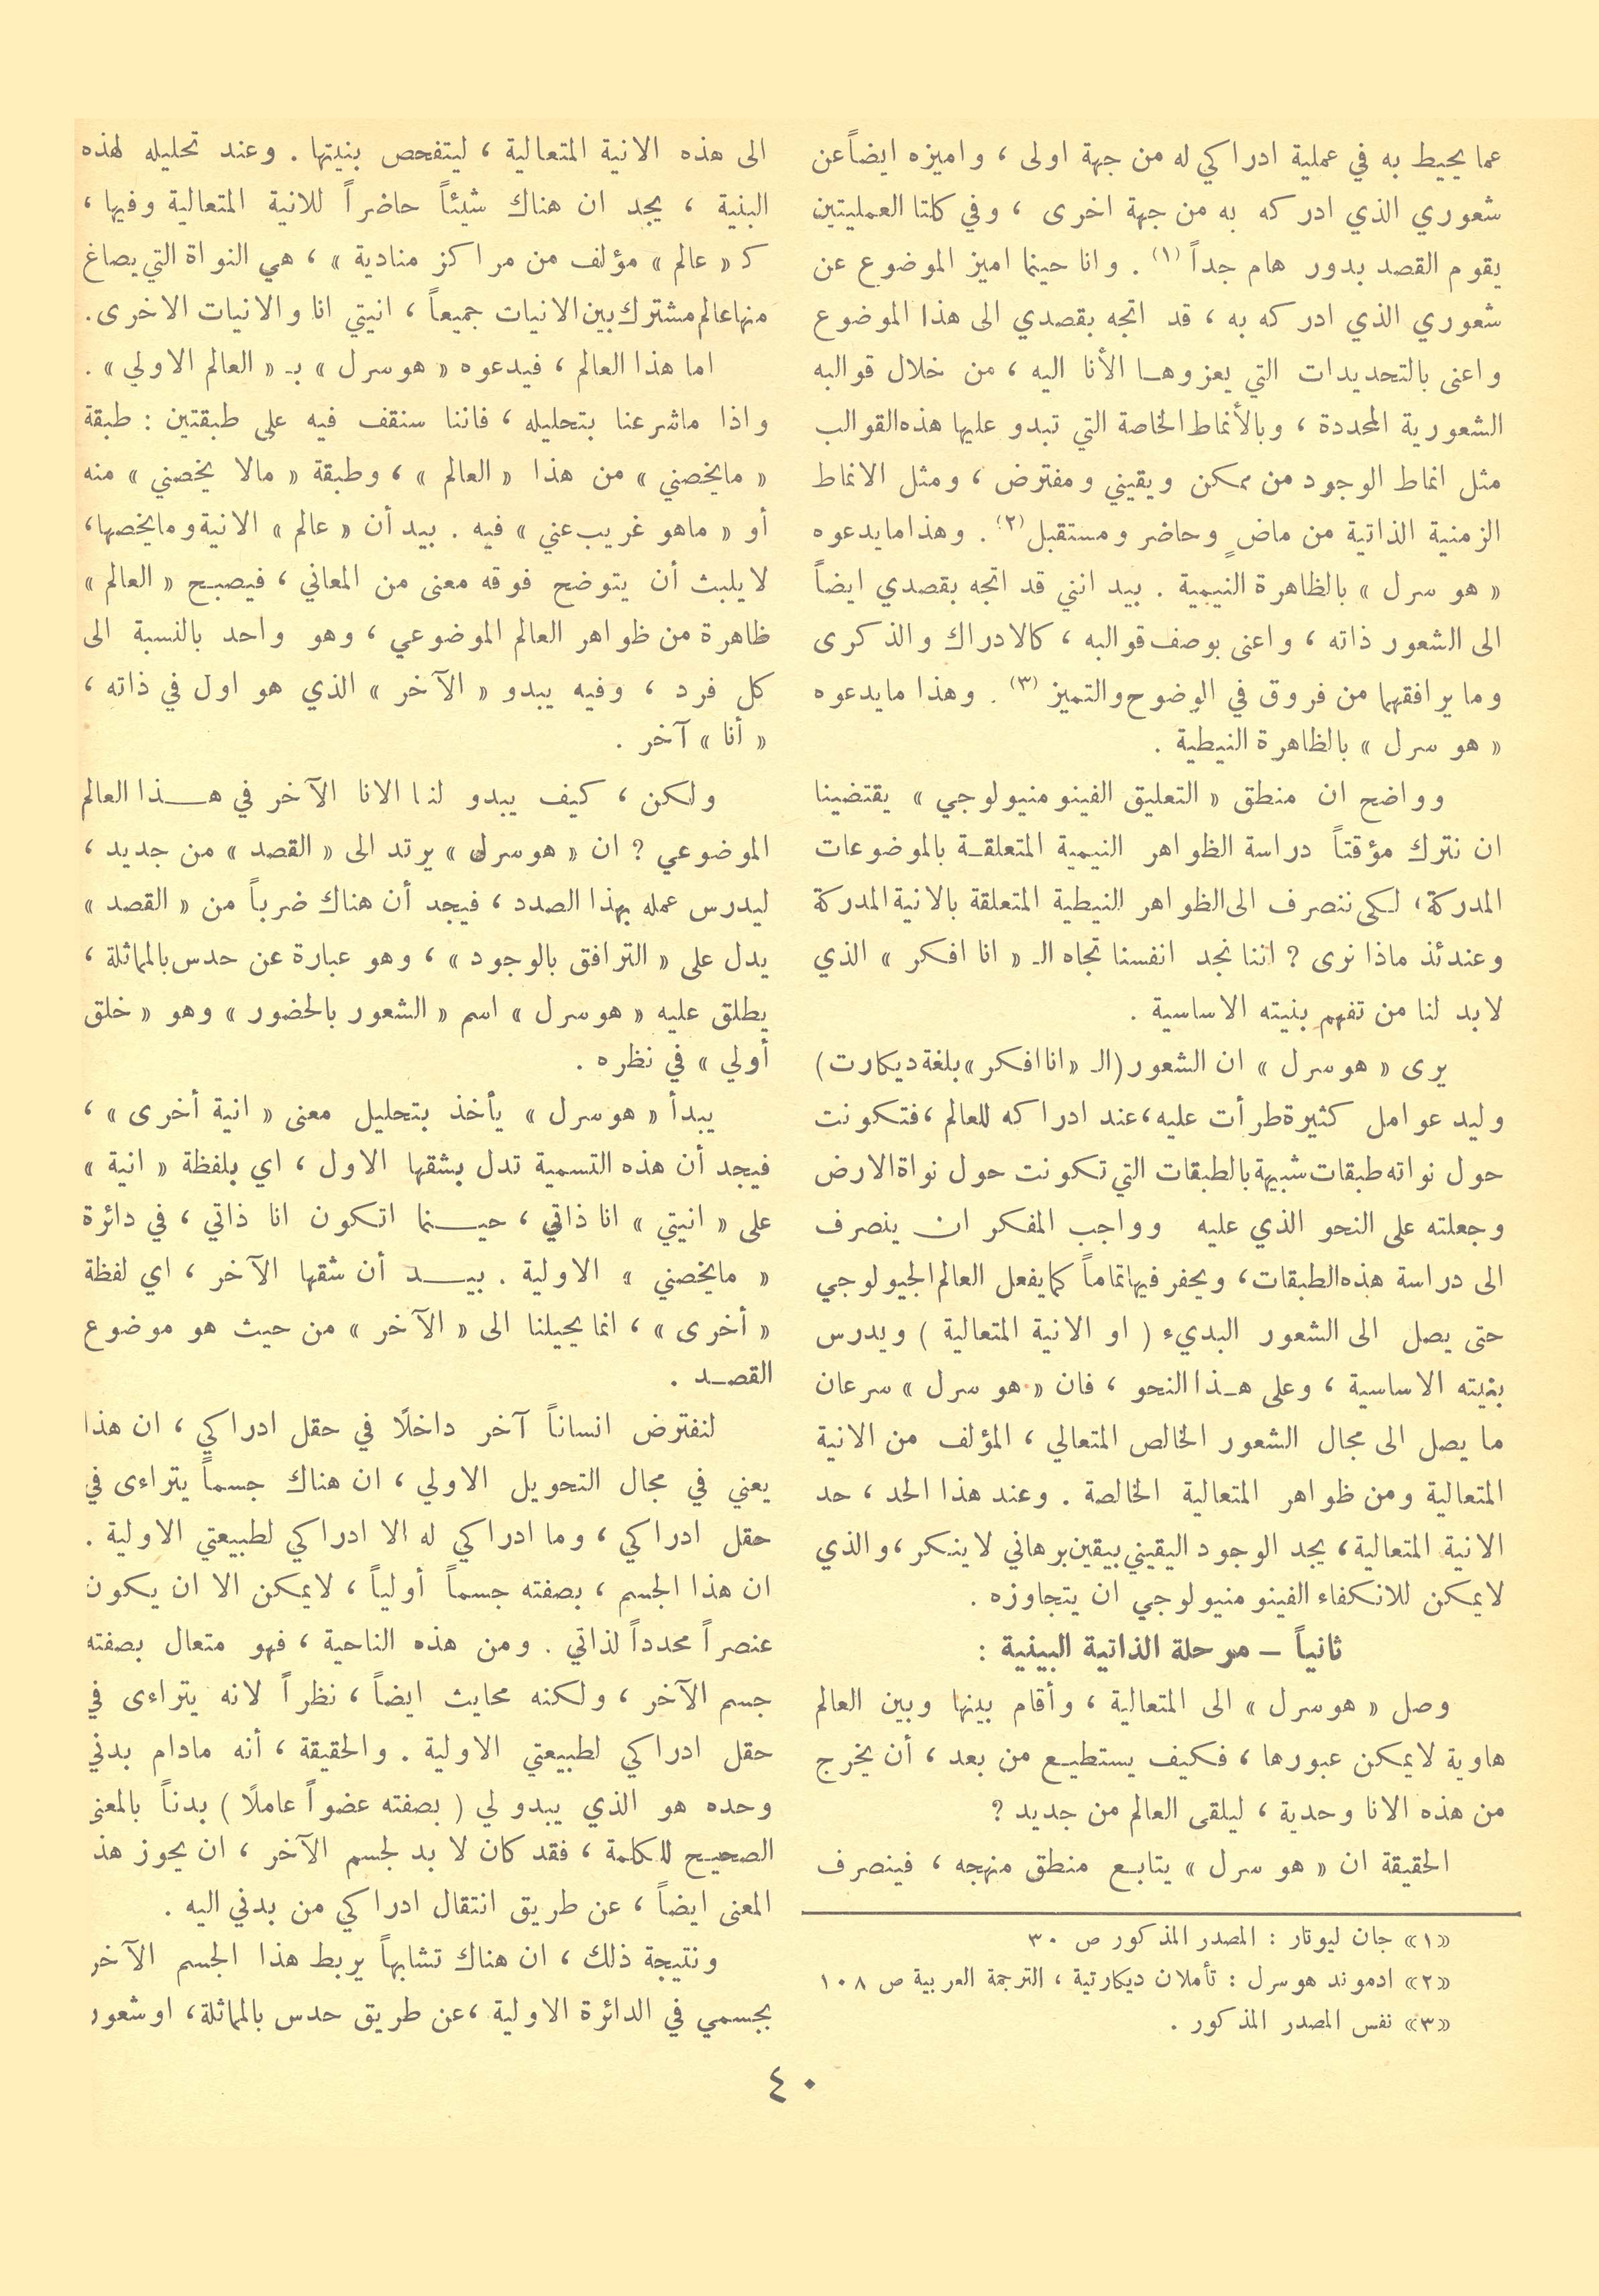 عما يحيط به في عملية ادراكي له من جهة اولى ، واميزه ايضاً عن
شعوري الذي ادركه به من جهة اخرى ، وفي كلتا العمليتين
يقوم القصد بدور هام جداً (١) . وانا حينما اميز الموضوع عن
شعوري الذي ادركه به ، قد اتجه بقصدي الى هذا الموضوع
واعنى بالتحديدات التي يعزوهـا الأنا اليه ، من خلال قوالبه
الشعورية المحددة ، وبالأنماط الخاصة التي تبدو عليها هذه القوالب
مثل انماط الوجود من ممكن ويقيني ومفترض ، ومثل الانماط
الزمنية الذاتية من ماضٍ وحاضر ومستقبل (٢) . وهذا مايدعوه
« هوسرل » بالظاهرة النيمية . بيد انني قد اتجه بقصدي ايضاً
الى الشعور ذاته ، واعنى بوصف قوالبه ، كالادراك والذكرى
وما يرافقهما من فروق في الوضوح والتميز (٣) . وهذا مايدعوه
« هوسرل » بالظاهرة النيطية .
وواضح ان منطق « التعليق الفينومنيولوجي » يقتضينا
ان نترك مؤقتاً دراسة الظواهر النيمية المتعلقـة بالموضوعات
المدركة ، لكي ننصرف الى الظواهر النيطية المتعلقة بالانية المدركة
وعندئذ ماذا نرى ؟ اننا نجد انفسنا تجاه الـ « انا افكر » الذي
لابد لنا من تفهم بنيته الاساسية .
يرى « هوسرل » ان الشعور ( الـ « انا افكر » بلغة ديكارت )
وليد عوامل كثيرة طرأت عليه ، عند ادراكه للعالم ، فتكونت
حول نواته طبقات شبيهة بالطبقات التي تكونت حول نواة الارض
وجعلته على النحو الذي عليه وواجب المفكر ان ينصرف
الى دراسة هذه الطبقات ، ويحفر فيها تماماً كما يفعل العالم الجيولوجي
حتى يصل الى الشعور البديء ( او الانية المتعالية ) ويدرس
بنيته الاساسية ، وعلى هـذا النحو ، فان « هوسرل » سرعان
ما يصل الى مجال الشعور الخالص المتعالي ، المؤلف من الانية
المتعالية ومن ظواهر المتعالية الخالصة . وعند هذا الحد ، حد
الانية المتعالية ، يجد الوجود اليقيني بيقين برهاني لاينكر ، والذي
لايمكن للانكفاء الفينومنيولوجي ان يتجاوزه .
ثانياً – مرحلة الذاتية البينية :
وصل « هوسرل » الى المتعالية ، وأقام بينها وبين العالم
هاوية لايمكن عبورها ، فكيف يستطيـع من بعد ، أن يخرج
من هذه الانا وحدية ، ليلقى العالم من جديد ؟
الحقيقة ان « هوسرل » يتابـع منطق منهجه ، فينصرف
«١» جان ليوتار : المصدر المذكور ص ٣٠
«٢» ادموند هوسرل : تأملان ديكارتية ، الترجمة العربية ص ١٠٨
«٣» نفس المصدر المذكور .
الى هذه الانية المتعالية ، ليتفحص بنيتها . وعند تحليله لهذه
البنية ، يجد ان هناك شيئاً حاضراً للانية المتعالية وفيها ،
كـ « عالم » مؤلف من مراكز منادية » ، هي النواة التي يصاغ
منها عالم مشترك بين الانيات جميعاً ، انيتي انا والانيات الاخرى .
اما هذا العالم ، فيدعوه « هوسرل » بـ « العالم الاولي » .
واذا ماشرعنا بتحليله ، فاننا سنقف فيه على طبقتين : طبقة
« مايخصني » من هذا « العالم » ، وطبقة « مالا يخصني » منه
أو « ماهو غريب عني » فيه . بيد أن « عالم » الانية ومايخصها ،
لايلبث أن يتوضح فوقه معنى من المعاني ، فيصبـح « العالم »
ظاهرة من ظواهر العالم الموضوعي ، وهو واحد بالنسبة الى
كل فرد ، وفيه يبدو « الآخر » الذي هو اول في ذاته ،
« أنا » آخر .
ولكن ، كيف يبدو لنا الانا الآخر في هـــذا العالم
الموضوعي ؟ ان « هوسرل » يرتد الى « القصد » من جديد ،
ليدرس عمله بهذا الصدد ، فيجد أن هناك ضرباً من « القصد »
يدل على « الترافق بالوجود » ، وهو عبارة عن حدس بالمماثلة ،
يطلق عليه « هوسرل » اسم « الشعور بالحضور » وهو « خلق
أولي » في نظره .
يبدأ « هوسرل » يأخذ بتحليل معنى « انية أخرى » ،
فيجد أن هذه التسمية تدل بشقها الاول ، اي بلفظة « انية »
على « انيتي » انا ذاتي ، حيــنما اتكون انا ذاتي ، في دائرة
« مايخصني » الاولية . بيـــد أن شقها الآخر ، اي لفظة
« أخرى » ، انما يحيلنا الى « الآخر » من حيث هو موضوع
القصـد .
لنفترض انساناً آخر داخلًا في حقل ادراكي ، ان هذا
يعني في مجال التحويل الاولي ، ان هناك جسماً يتراءى في
حقل ادراكي ، وما ادراكي له الا ادراكي لطبيعتي الاولية .
ان هذا الجسم ، بصفته جسماً أولياً ، لايمكن الا ان يكون
عنصراً محدداً لذاتي . ومن هذه الناحية ، فهو متعال بصفته
جسم الآخر ، ولكنه محايث ايضاً ، نظراً لانه يتراءى في
حقل ادراكي لطبيعتي الاولية . والحقيقة ، أنه مادام بدني
وحده هو الذي يبدو لي ( بصفته عضواً عاملًا ) بدناً بالمعنى
الصحيـح للكلمة ، فقد كان لا بد لجسم الآخر ، ان يحوز هذ
المعنى ايضاً ، عن طريق انتقال ادراكي من بدني اليه .
ونتيجة ذلك ، ان هناك تشابهاً يربط هذا الجسم الآخر
بجسمي في الدائرة الاولية ، عن طريق حدس بالمماثلة ، او شعور
٤٠